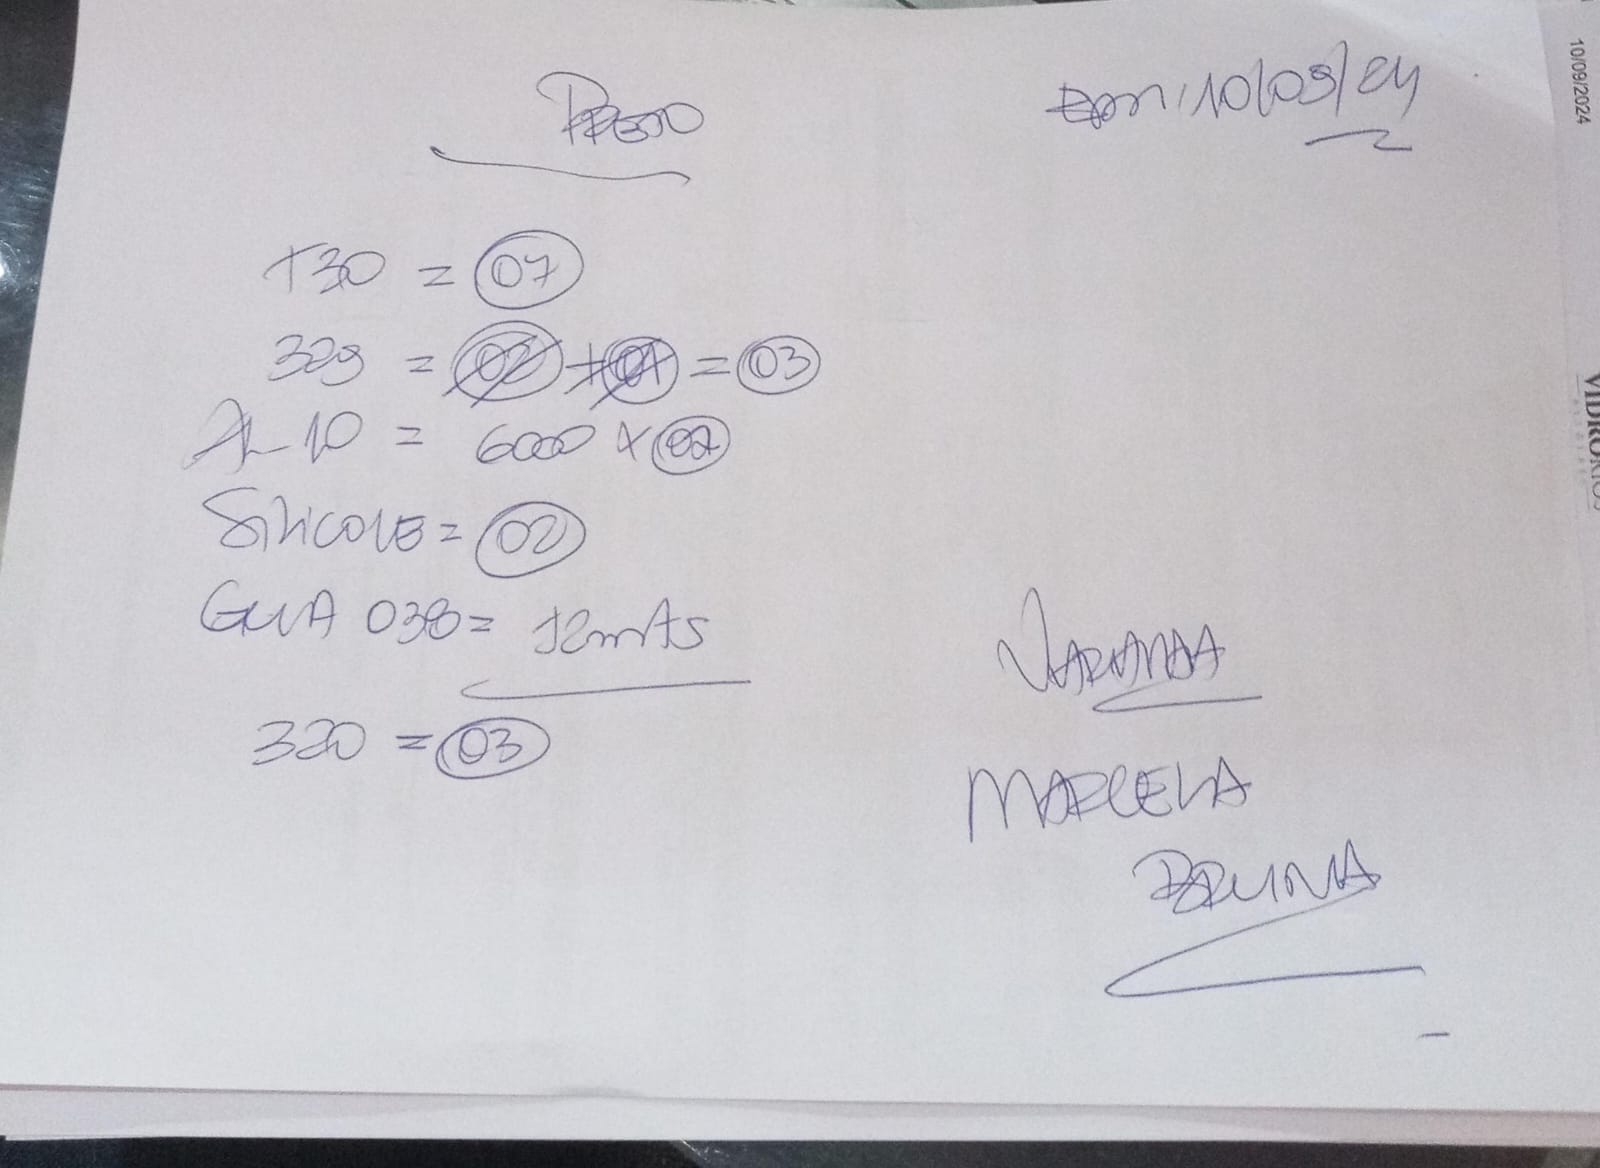 PRETO
Em, 10/09/24
T30 = 07
329 = 02 + 01 = 03
AL 10 = 6000 x 02
SiLiCONE = 02
GUIA 038 = 12mts
320 = 03
VARANDA
MARCELA
BRUNA
10/09/2024
VIDRORIOS